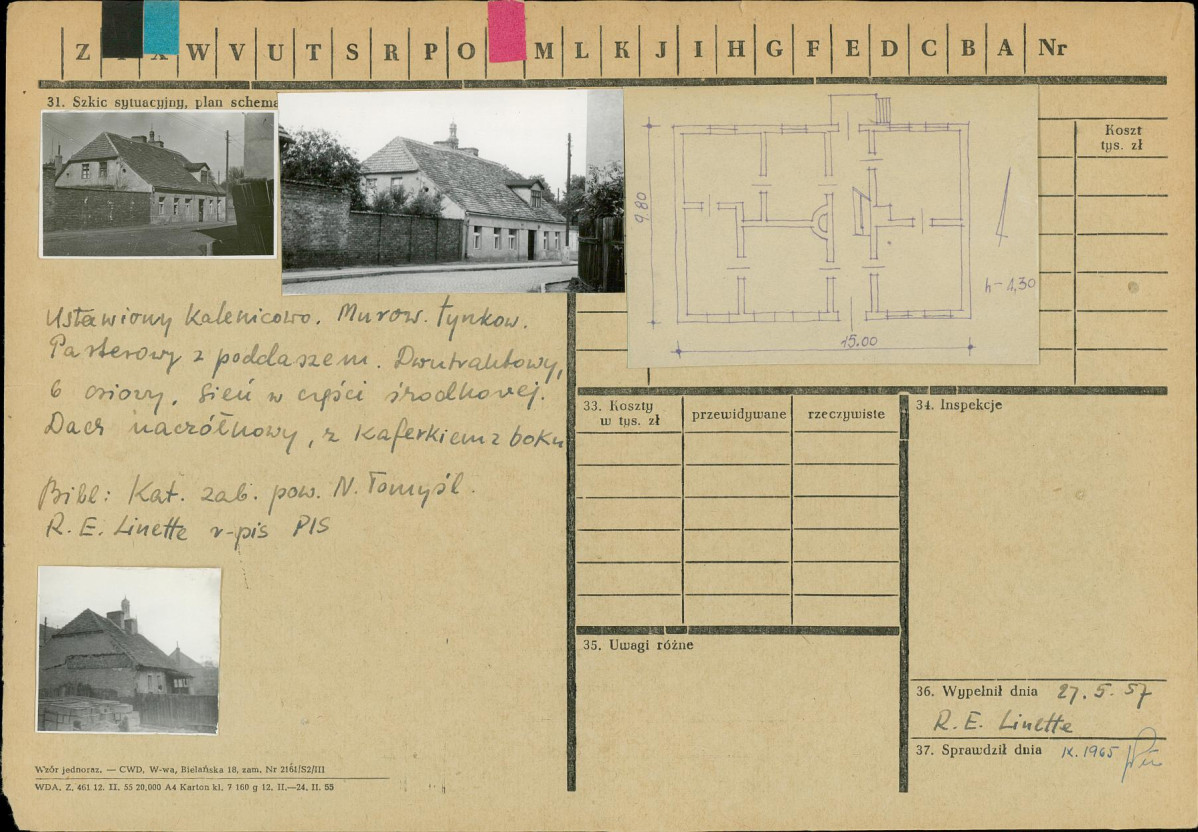 Z X W V U T S R P O M L K J I H G F E D C B A Nr
31. Szkic sytuacyjny, plan schema
Koszt
tys. zł
9,80
h-1,30
15.00
Ustawiony Kalenicowo. Murow. tynkow.
Parterowy z poddaszem. Dwutraktowy,
6 osiowy, Sień w części środkowej.
Dach naczółkowy, z Kaferkiem z boku
Bibl: Kat. zab. pow. N. Tomyśl.
R. E. Linette r-pis PIS
33. Koszty
w tys. zł
przewidywane
rzeczywiste
34. Inspekcje
35. Uwagi różne
36. Wypełnił dnia 27. 5. 57
R. E. Linette
37. Sprawdził dnia IX. 1965
Wzór jednoraz. — CWD, W-wa, Bielańska 18, zam. Nr 2161/S2/III
WDA. Z. 461 12. II. 55 20,000 A4 Karton kl. 7 160 g 12. II.—24. II. 55